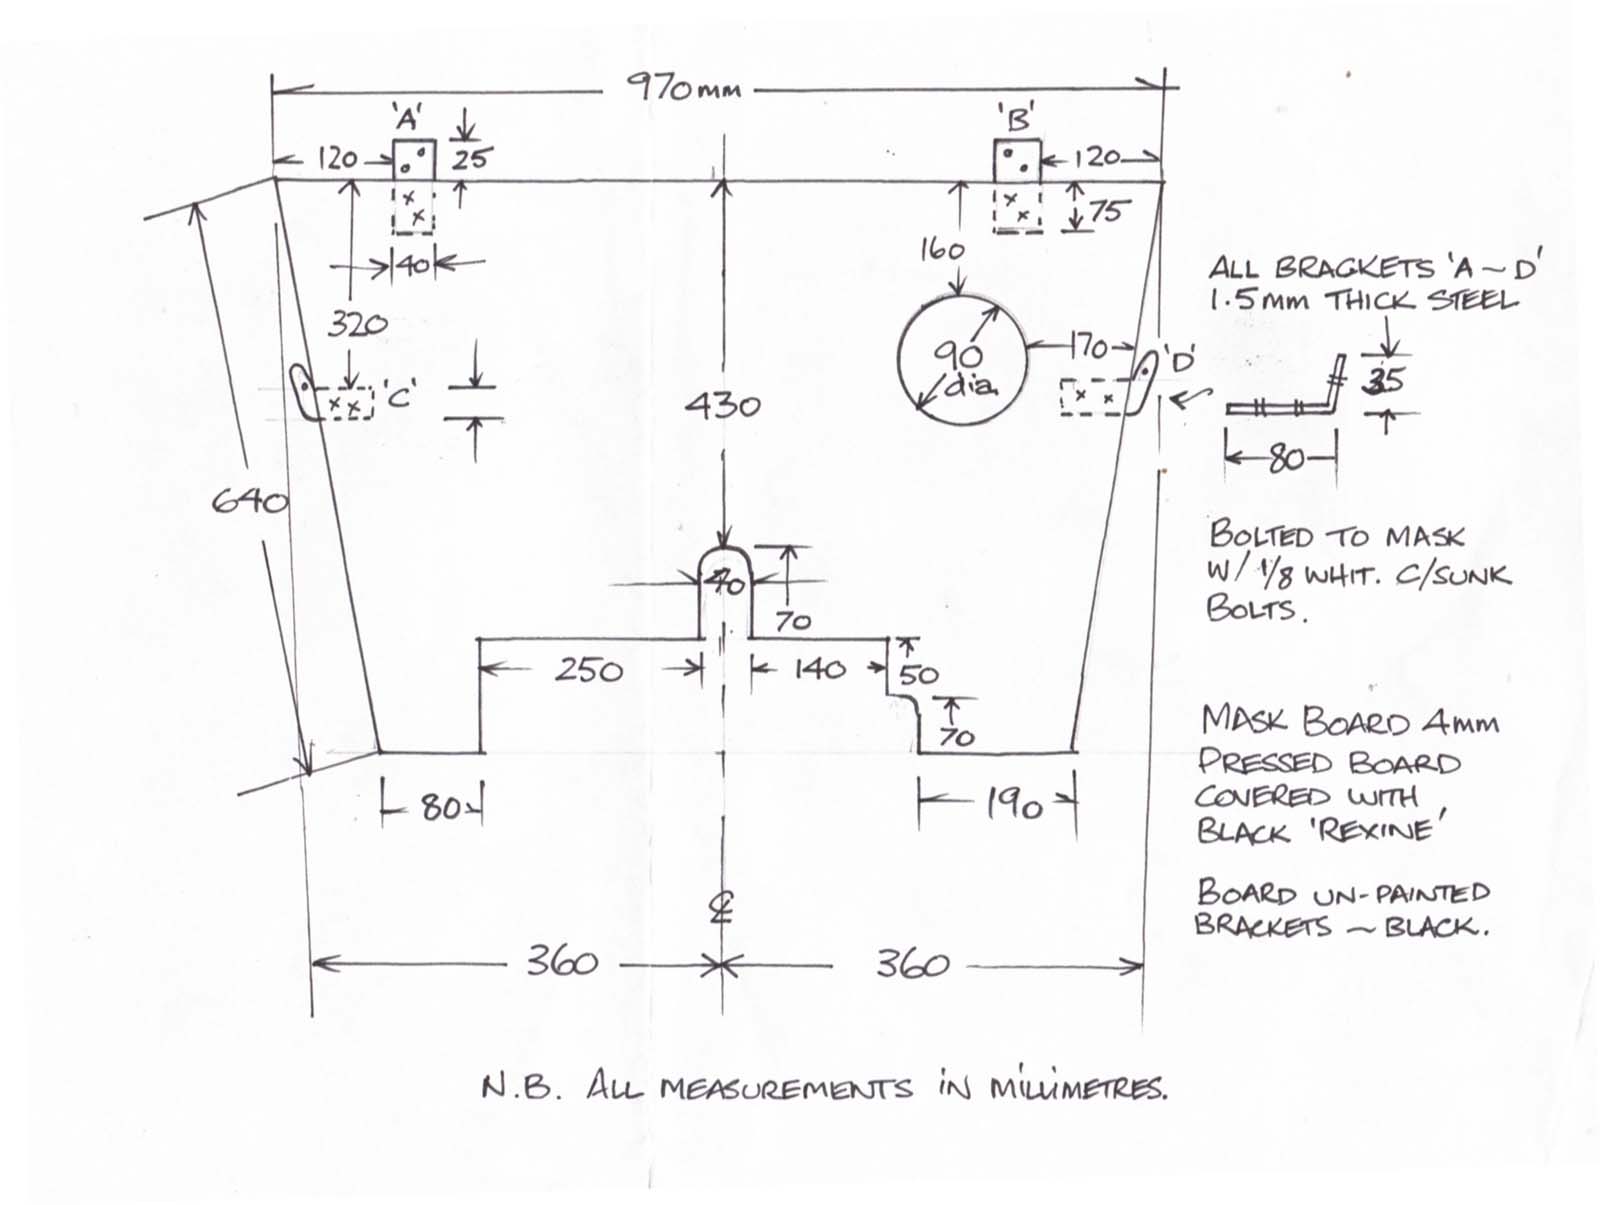 970mm
'A'
'B'
120
25
120
75
40
160
320
'C'
90
dia.
170
'D'
430
640
ALL BRACKETS 'A~D'
1.5mm THICK STEEL
35
80
BOLTED TO MASK
W/ 1/8 WHIT. C/SUNK
BOLTS.
70
250
140
50
70
80
190
MASK BOARD 4mm
PRESSED BOARD
COVERED WITH
BLACK 'REXINE'
BOARD UN-PAINTED
BRACKETS ~ BLACK.
℄
360
360
N.B. ALL MEASUREMENTS IN MILLIMETRES.